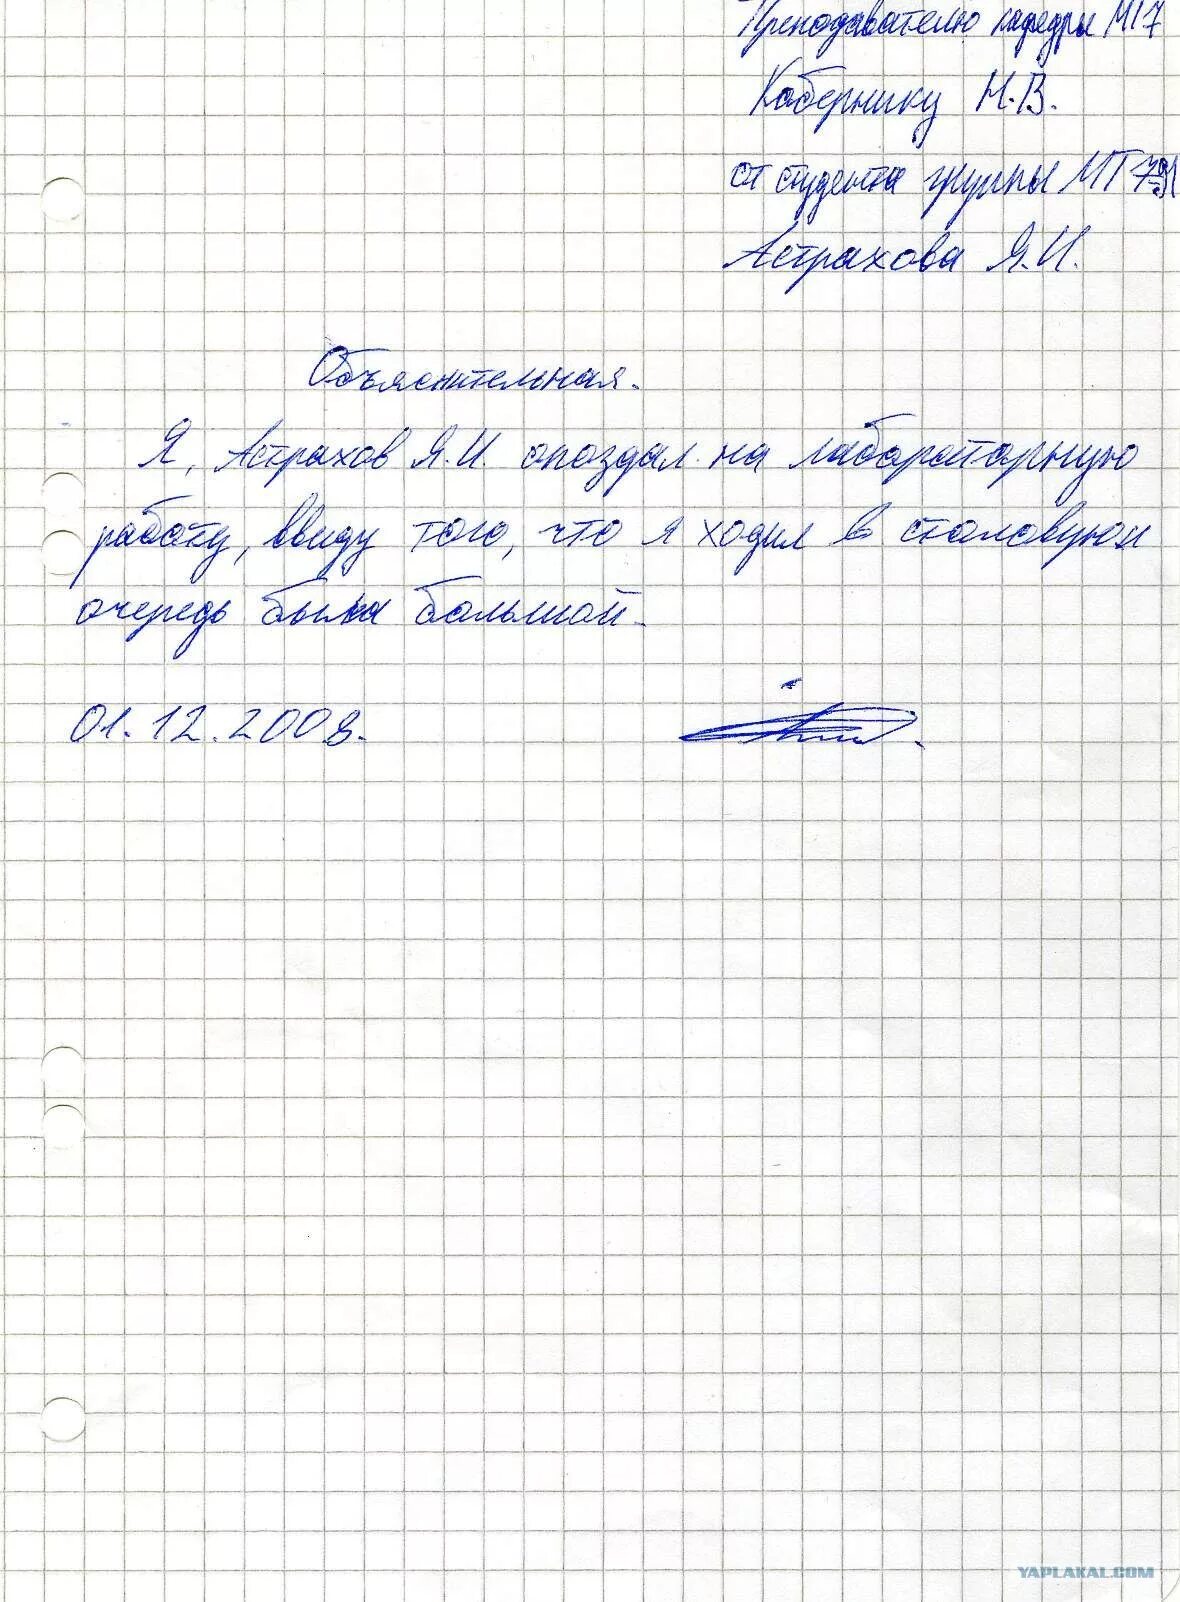 Преподавателю кафедры МТ7
Кобернику Н.В.
от студента группы МТ7-91
Астрахова Я.И.
Объяснительная.
Я, Астрахов Я.И. опоздал на лабораторную
работу, ввиду того, что я ходил в столовую и
очередь была большой.
01.12.2008.
YAPLAKAL.COM